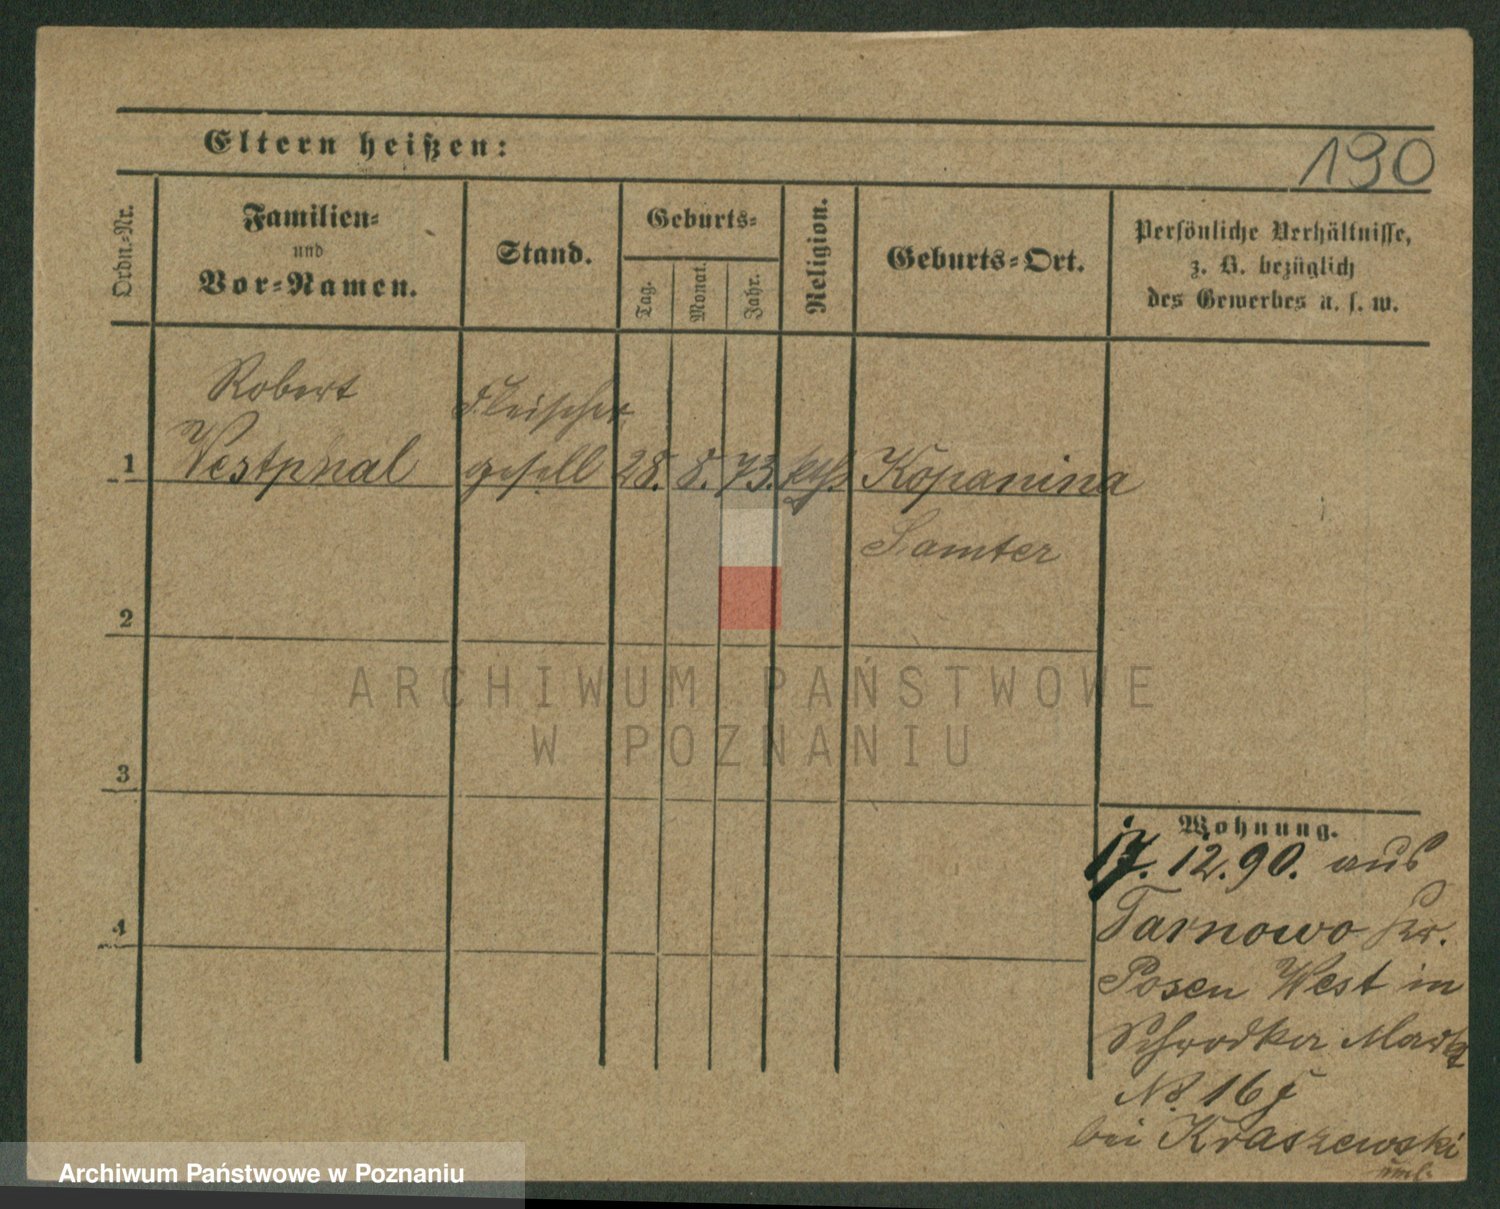 Eltern heißen:
190
Ordn.-Nr.
Familien-
und
Vor-Namen.
Stand.
Geburts-
Tag.
Monat.
Jahr.
Religion.
Geburts-Ort.
Persönliche Verhältnisse,
z. B. bezüglich
des Gewerbes u. s. w.
Robert
Westphal
Fleischer
gesell
1
28. 8. 73. kth. Kopanina
Samter
2
3
4
ARCHIWUM PAŃSTWOWE
W POZNANIU
Wohnung.
17. 12. 90. aus
Tarnowo Kr.
Posen West in
Schrodka Markt
No. 16
bei Kraszewski
Archiwum Państwowe w Poznaniu